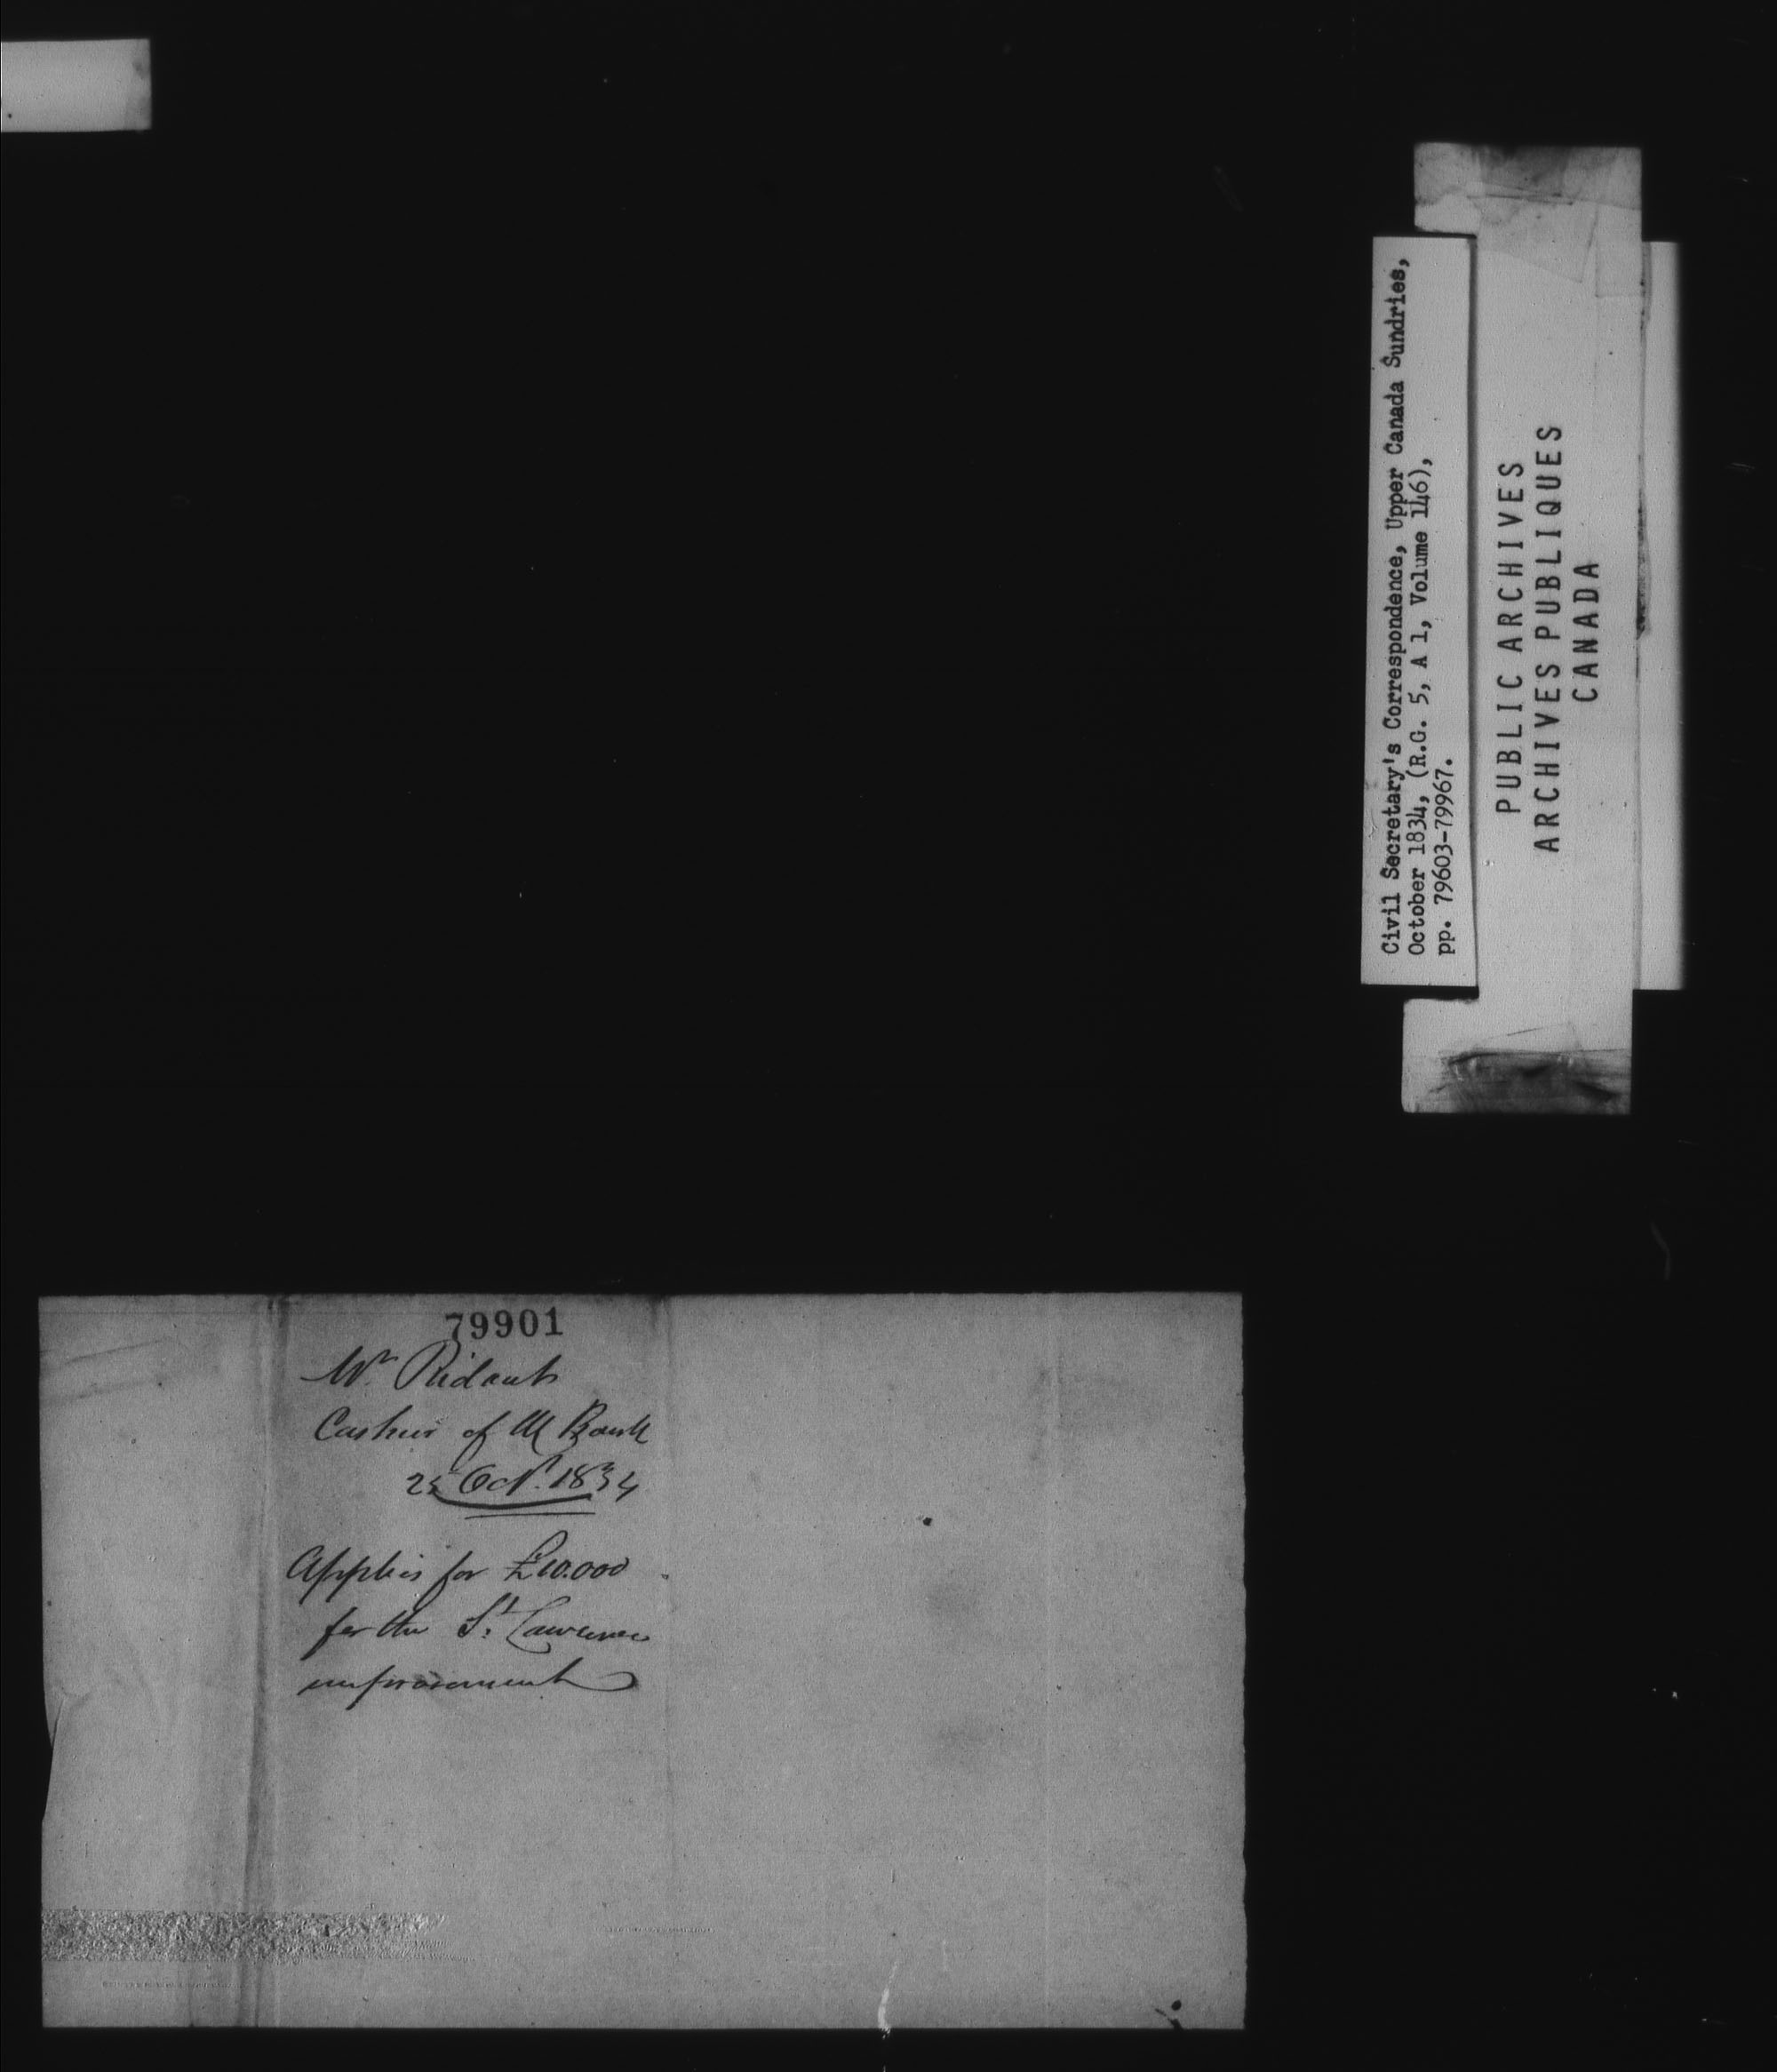 Civil Secretary's Correspondence, Upper Canada Sundries,
October 1834, (R.G. 5, A 1, Volume 146),
pp. 79603-79967.
PUBLIC ARCHIVES
ARCHIVES PUBLIQUES
CANADA
79901
Mr. Ridout
Cashier of UC Bank
25 Oct. 1834
Applies for £10.000
for the St. Lawrence
improvement